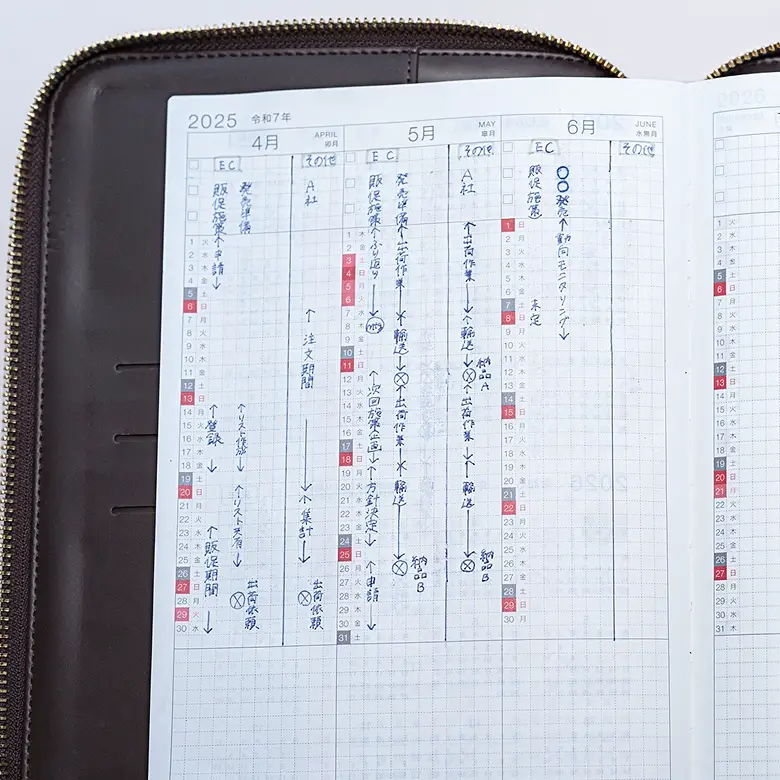 2025 令和7年
4月 APRIL 卯月
EC その他
販促施策 発売準備 A社
1 火
2 水
3 木
4 金
5 土
6 日
7 月
8 火
9 水
10 木
11 金
12 土
13 日
14 月
15 火
16 水
17 木
18 金
19 土
20 日
21 月
22 火
23 水
24 木
25 金
26 土
27 日
28 月
29 火
30 水
申請
登録
販促期間
リスト作成
リスト共有
出荷依頼
注文期間
集計
出荷依頼
5月 MAY 皐月
EC その他
販促施策 発売準備 A社
1 木
2 金
3 土
4 日
5 月
6 火
7 水
8 木
9 金
10 土
11 日
12 月
13 火
14 水
15 木
16 金
17 土
18 日
19 月
20 火
21 水
22 木
23 金
24 土
25 日
26 月
27 火
28 水
29 木
30 金
31 土
ふり返り
次回施策企画
方針決定
申請
出荷作業
輸送
出荷作業
輸送
納品B
出荷作業
輸送
納品A
出荷作業
輸送
納品B
6月 JUNE 水無月
EC その他
販促施策 〇〇発売
1 日
2 月
3 火
4 水
5 木
6 金
7 土
8 日
9 月
10 火
11 水
12 木
13 金
14 土
15 日
16 月
17 火
18 水
19 木
20 金
21 土
22 日
23 月
24 火
25 水
26 木
27 金
28 土
29 日
30 月
未定
動向モニタリング
1 火
2 水
3 木
4 金
5 土
6 日
7 月
8 火
9 水
10 木
11 金
12 土
13 日
14 月
15 火
16 水
17 木
18 金
19 土
20 日
21 月
22 火
23 水
24 木
25 金
26 土
27 日
28 月
29 火
30 水
31 木